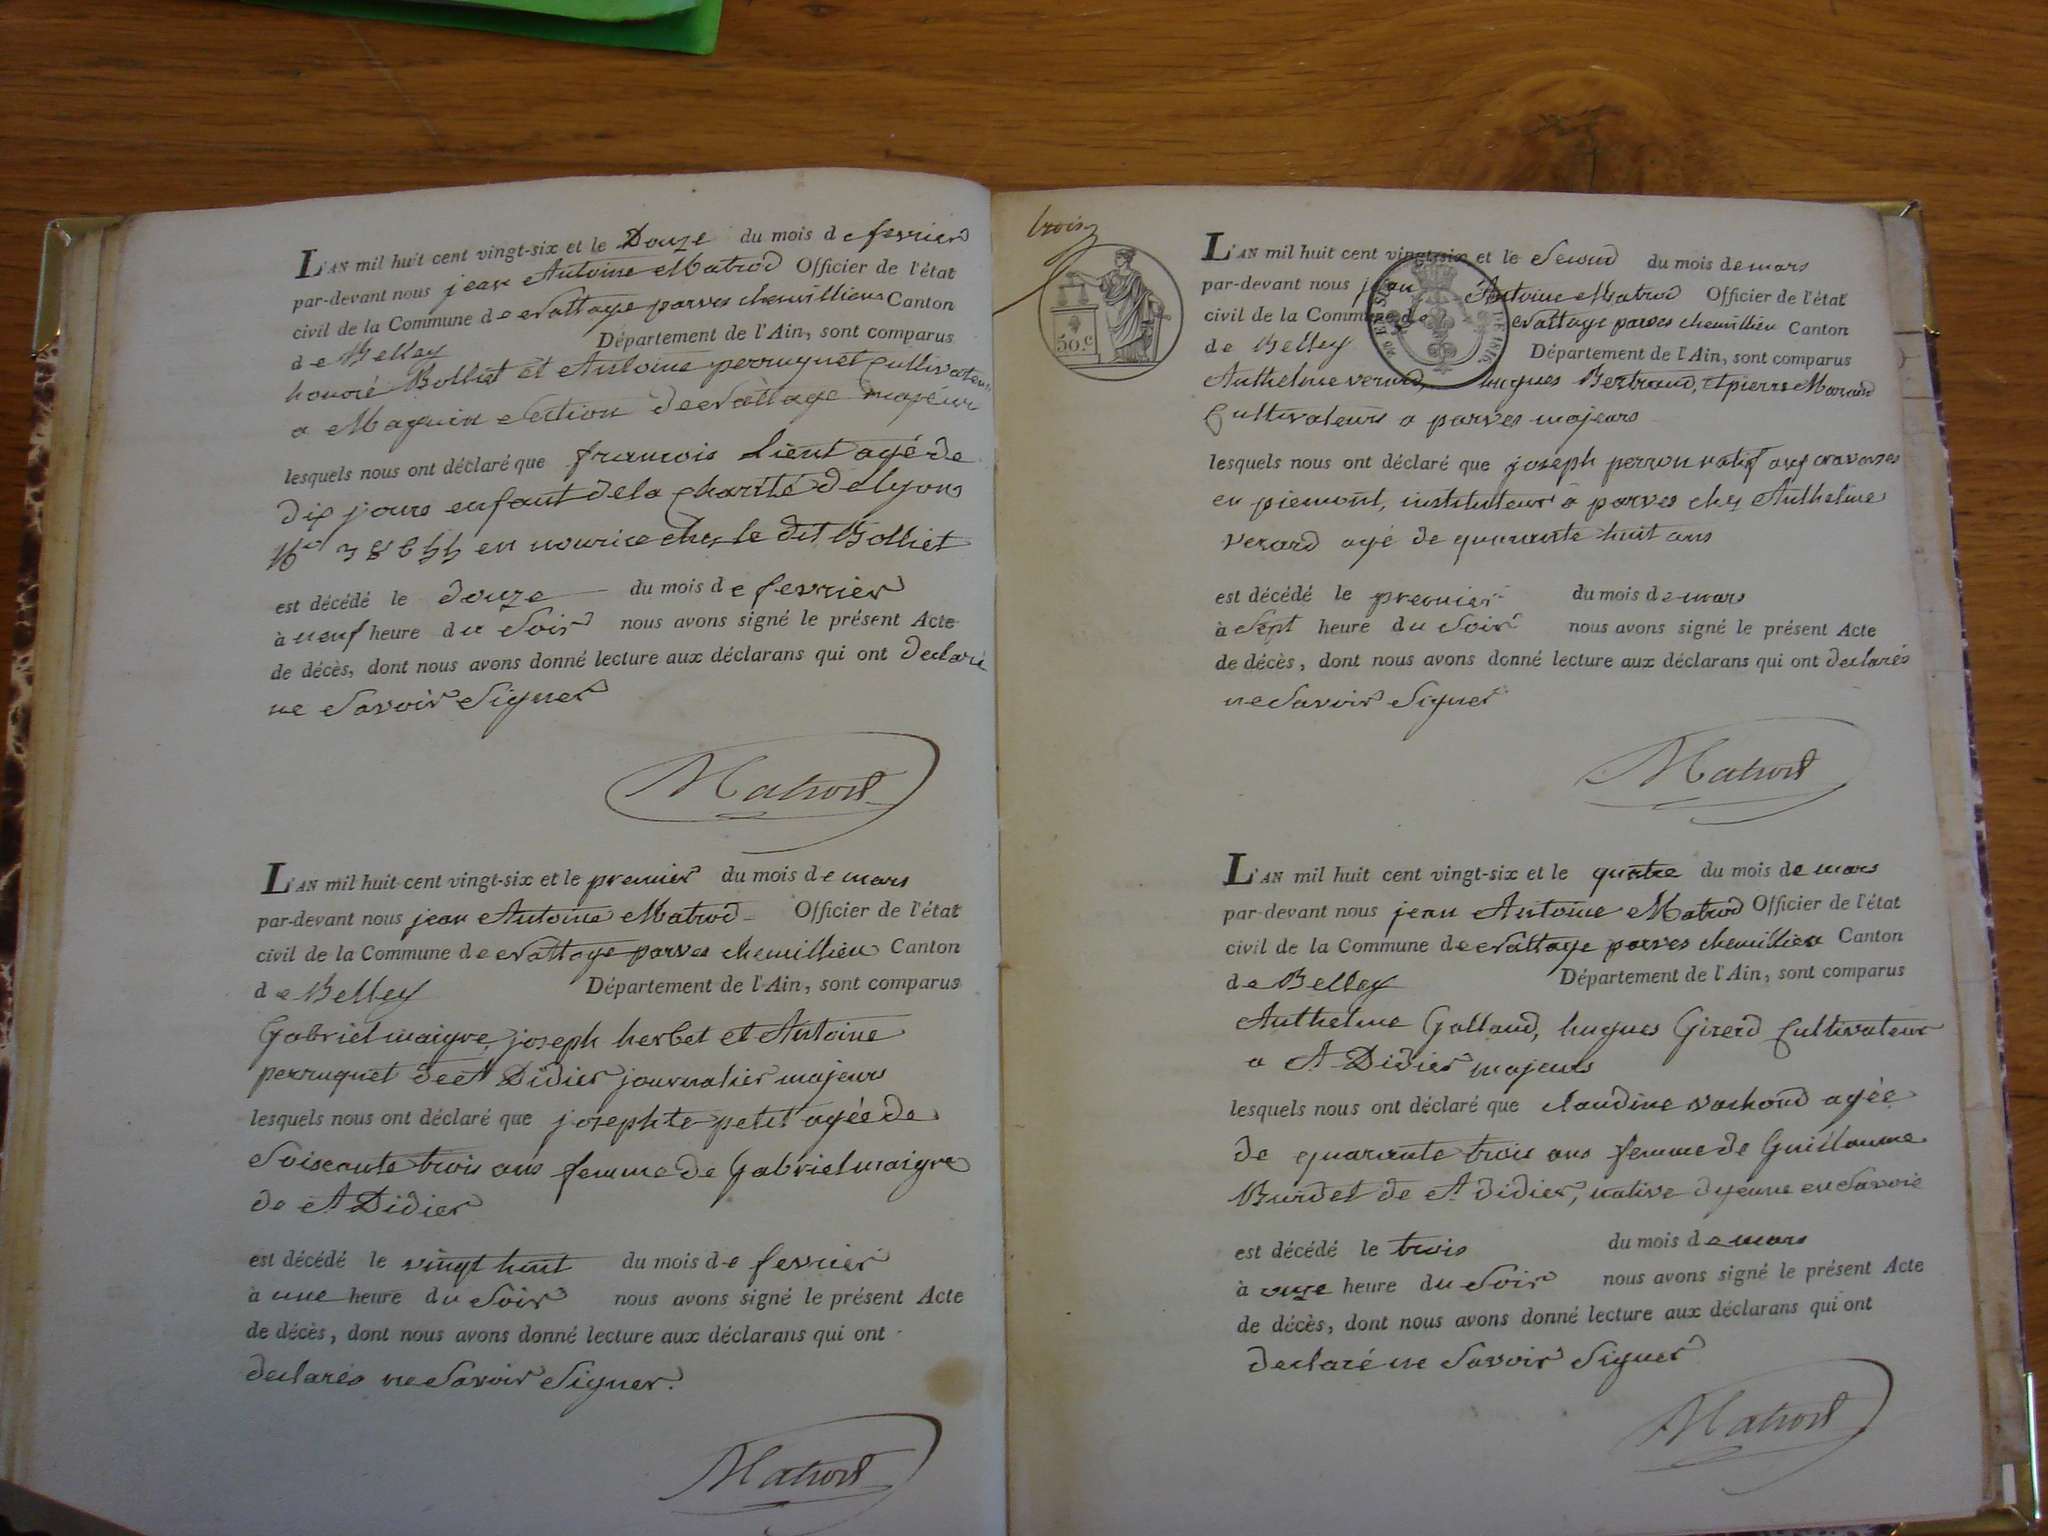 L'AN mil huit cent vingt-six et le Douze du mois de fevrier
par-devant nous jean Antoine Matrod Officier de l'état
civil de la Commune de Nattage parves chemillieu Canton
de Belley Département de l'Ain, sont comparus
honoré Bolliet et Antoine perruquet Cultivateurs
a Section de Nattage majeurs
lesquels nous ont déclaré que francois agé de
dix jours enfant de la Charité de Lyon
en nourice chez le dit Bolliet
est décédé le douze du mois de fevrier
à neuf heure du Soir nous avons signé le présent Acte
de décès, dont nous avons donné lecture aux déclarans qui ont declaré
ne Savoir Signer
Matrod
L'AN mil huit cent vingt-six et le premier du mois de mars
par-devant nous jean Antoine Matrod Officier de l'état
civil de la Commune de Nattage parves chemillieu Canton
de Belley Département de l'Ain, sont comparus
Gabriel maigre, joseph herbet et Antoine
perruquet de St Didier journalier majeurs
lesquels nous ont déclaré que josephte petit agée de
Soiscante trois ans femme de Gabriel maigre
de St Didier
est décédé le vingt huit du mois de fevrier
à une heure du Soir nous avons signé le présent Acte
de décès, dont nous avons donné lecture aux déclarans qui ont
declarés ne Savoir Signer.
Matrod
trois
50.c
L'AN mil huit cent vingt-six et le Second du mois de mars
par-devant nous jean Antoine Matrod Officier de l'état
civil de la Commune de Nattage parves chemillieu Canton
de Belley Département de l'Ain, sont comparus
DE 1816.
Anthelme verard, hugues Bertrand, et pierre
Cultivateurs a parves majeurs
lesquels nous ont déclaré que joseph perron natif
en piemont, instituteur a parves chez Anthelme
verard agé de quarante huit ans
est décédé le premier du mois de mars
à Sept heure du Soir nous avons signé le présent Acte
de décès, dont nous avons donné lecture aux déclarans qui ont declarés
ne Savoir Signer
Matrod
L'AN mil huit cent vingt-six et le quatre du mois de mars
par-devant nous jean Antoine Matrod Officier de l'état
civil de la Commune de Nattage parves chemillieu Canton
de Belley Département de l'Ain, sont comparus
Anthelme Galland, hugues Girerd Cultivateur
a St Didier majeurs
lesquels nous ont déclaré que claudine vachoud agée
de quarante trois ans femme de Guillaume
Burdet de St didier, native dyenne en Savoie
est décédé le trois du mois de mars
à onze heure du Soir nous avons signé le présent Acte
de décès, dont nous avons donné lecture aux déclarans qui ont
declaré ne Savoir Signer
Matrod